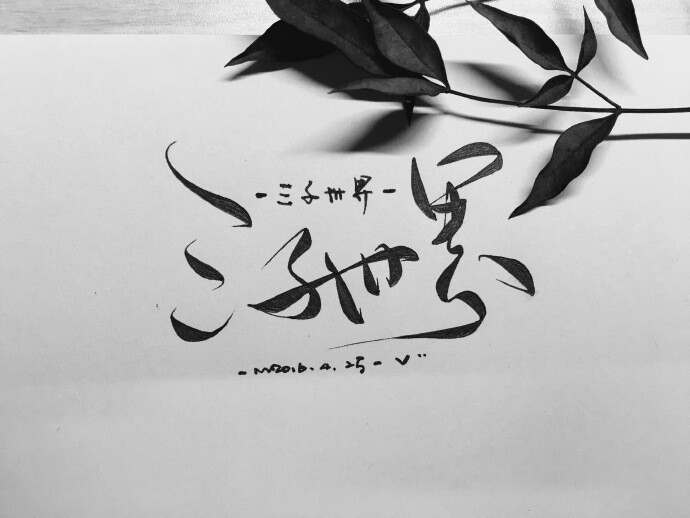 -三子世界-
三子世界
-2016.4.25- V